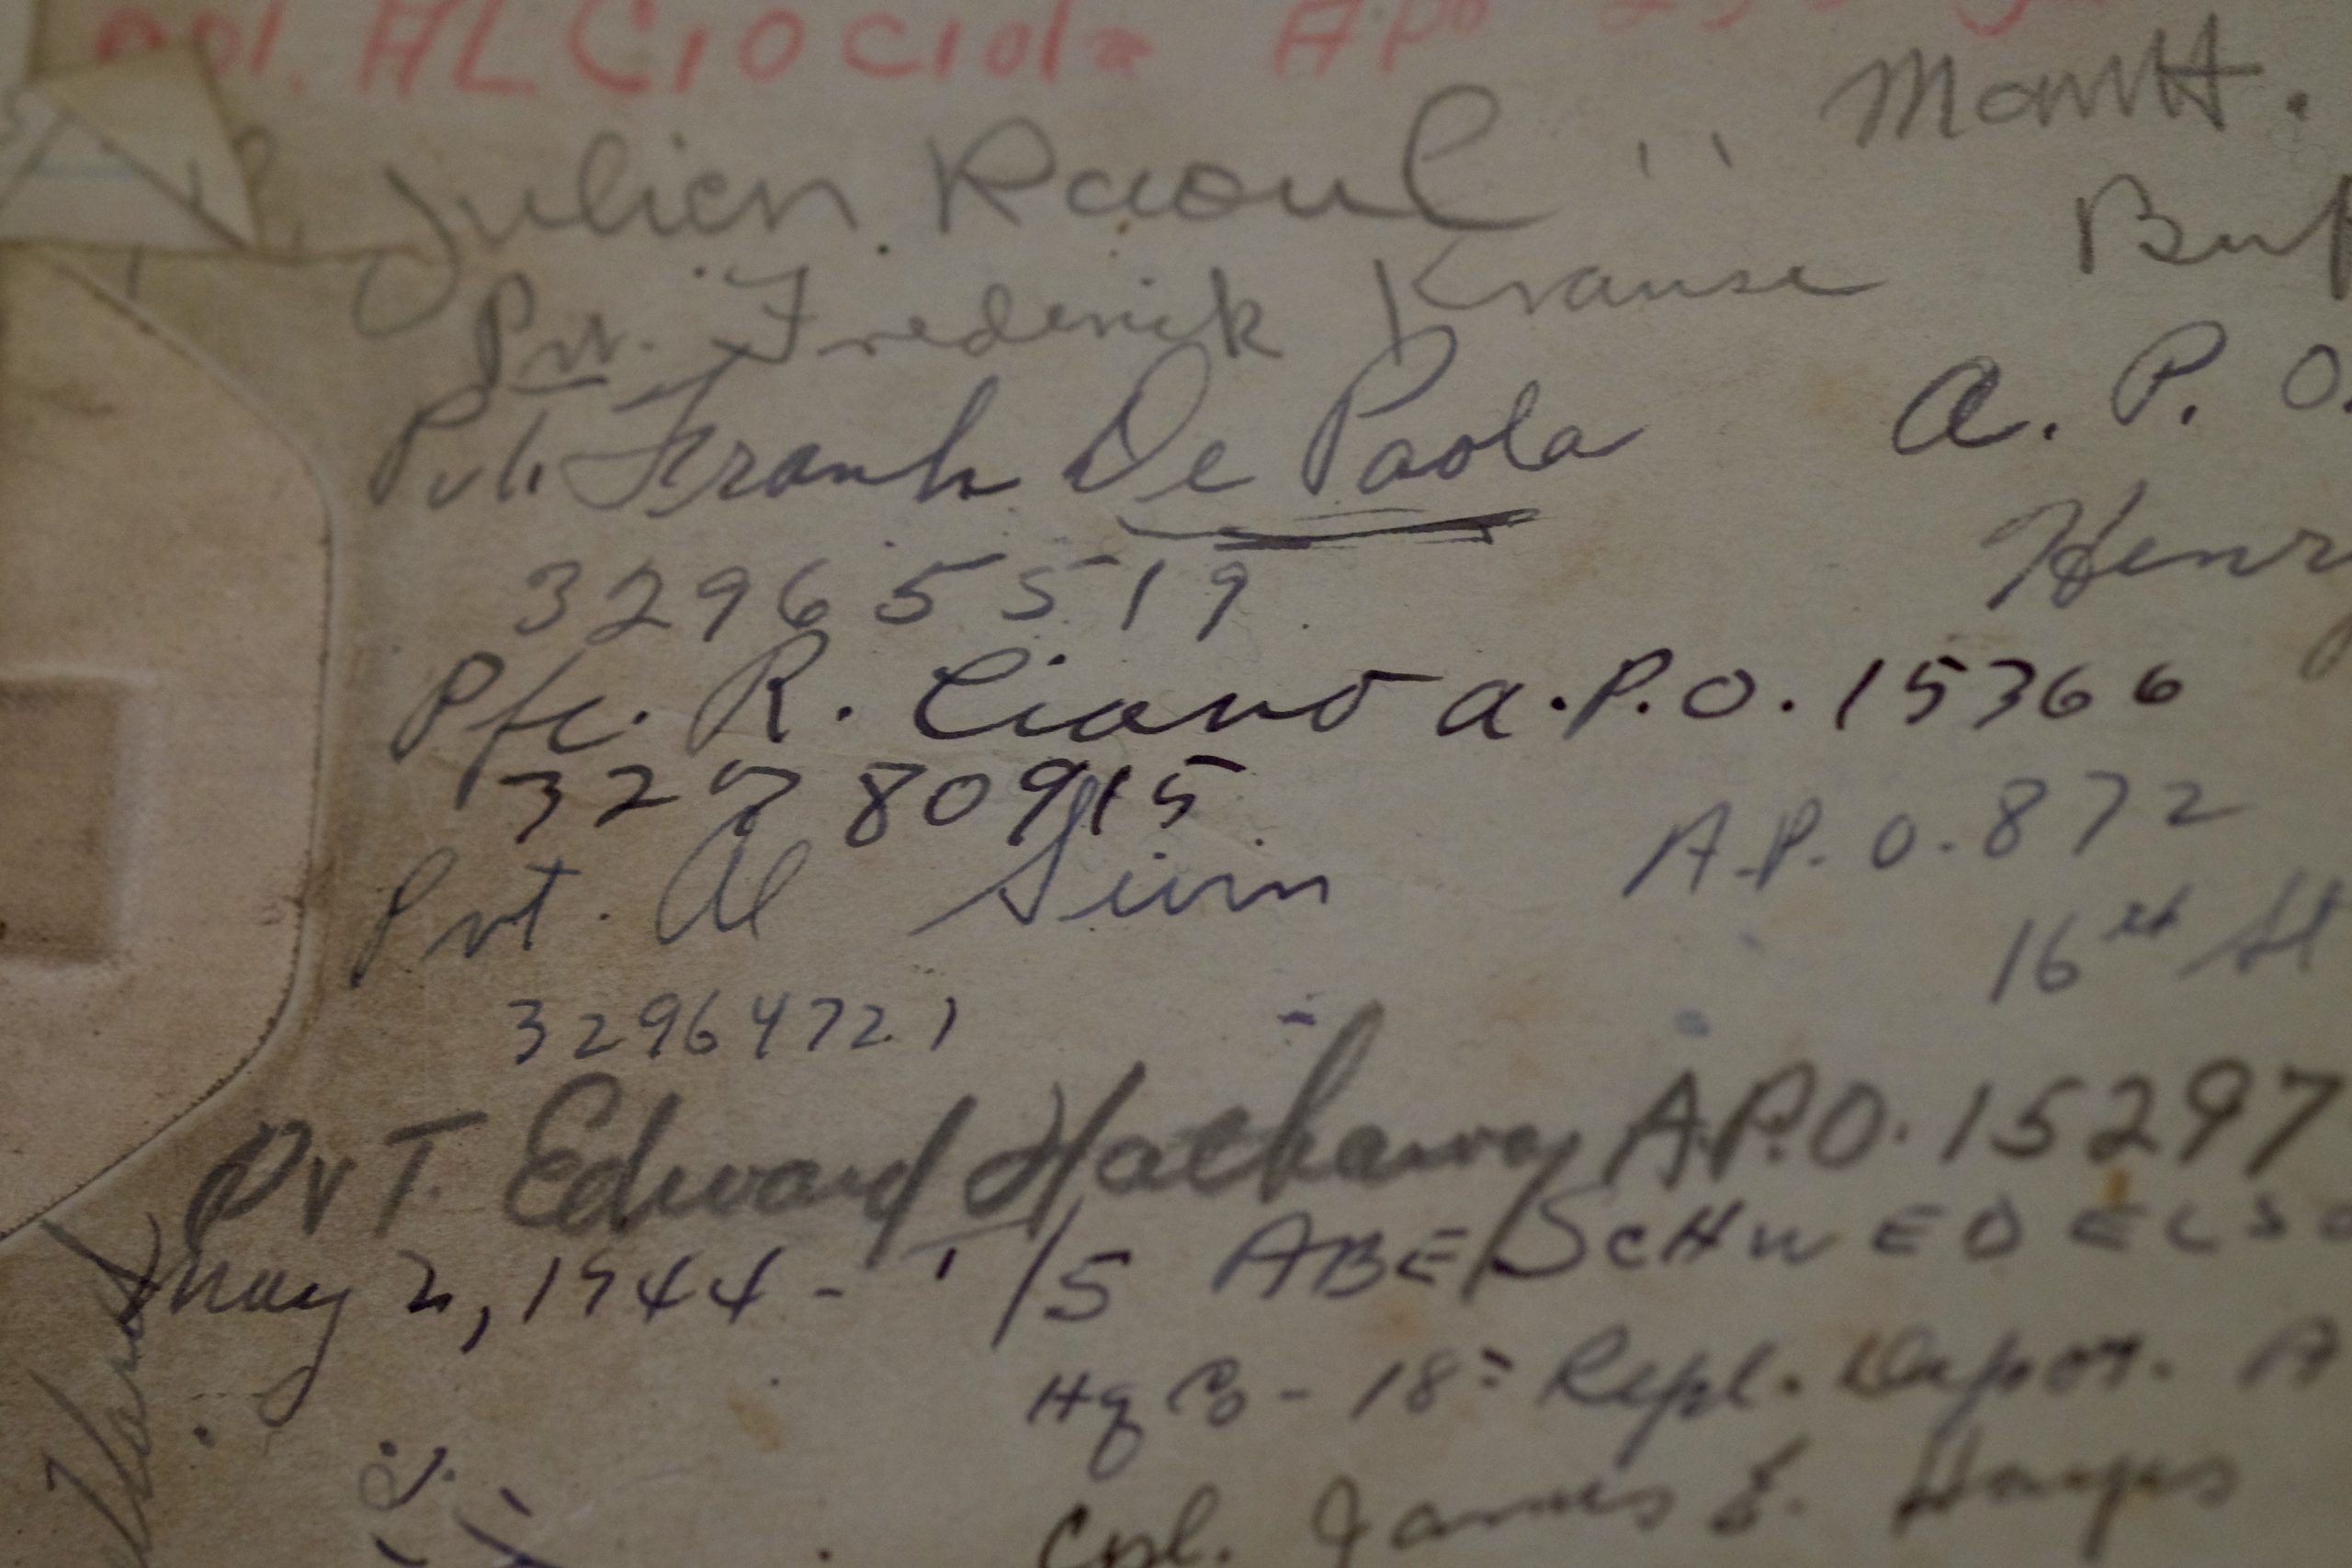 AL Ciociola APO
Montt.
Julien Raoul
Pvt. Frederick Krause
Pvt. Frank De Paola A. P. O.
32965519 Henry
Pfc. R. Ciano A.P.O. 15366
32780915
Pvt. Al A.P.O. 872
16th St
32964721
PvT. Edward Hathaway A.P.O. 15297
May 2, 1944 - T/5 ABE SCHWEDELS
Hq Co - 18 = Repl. Depot. A
Cpl. James E. Hayes